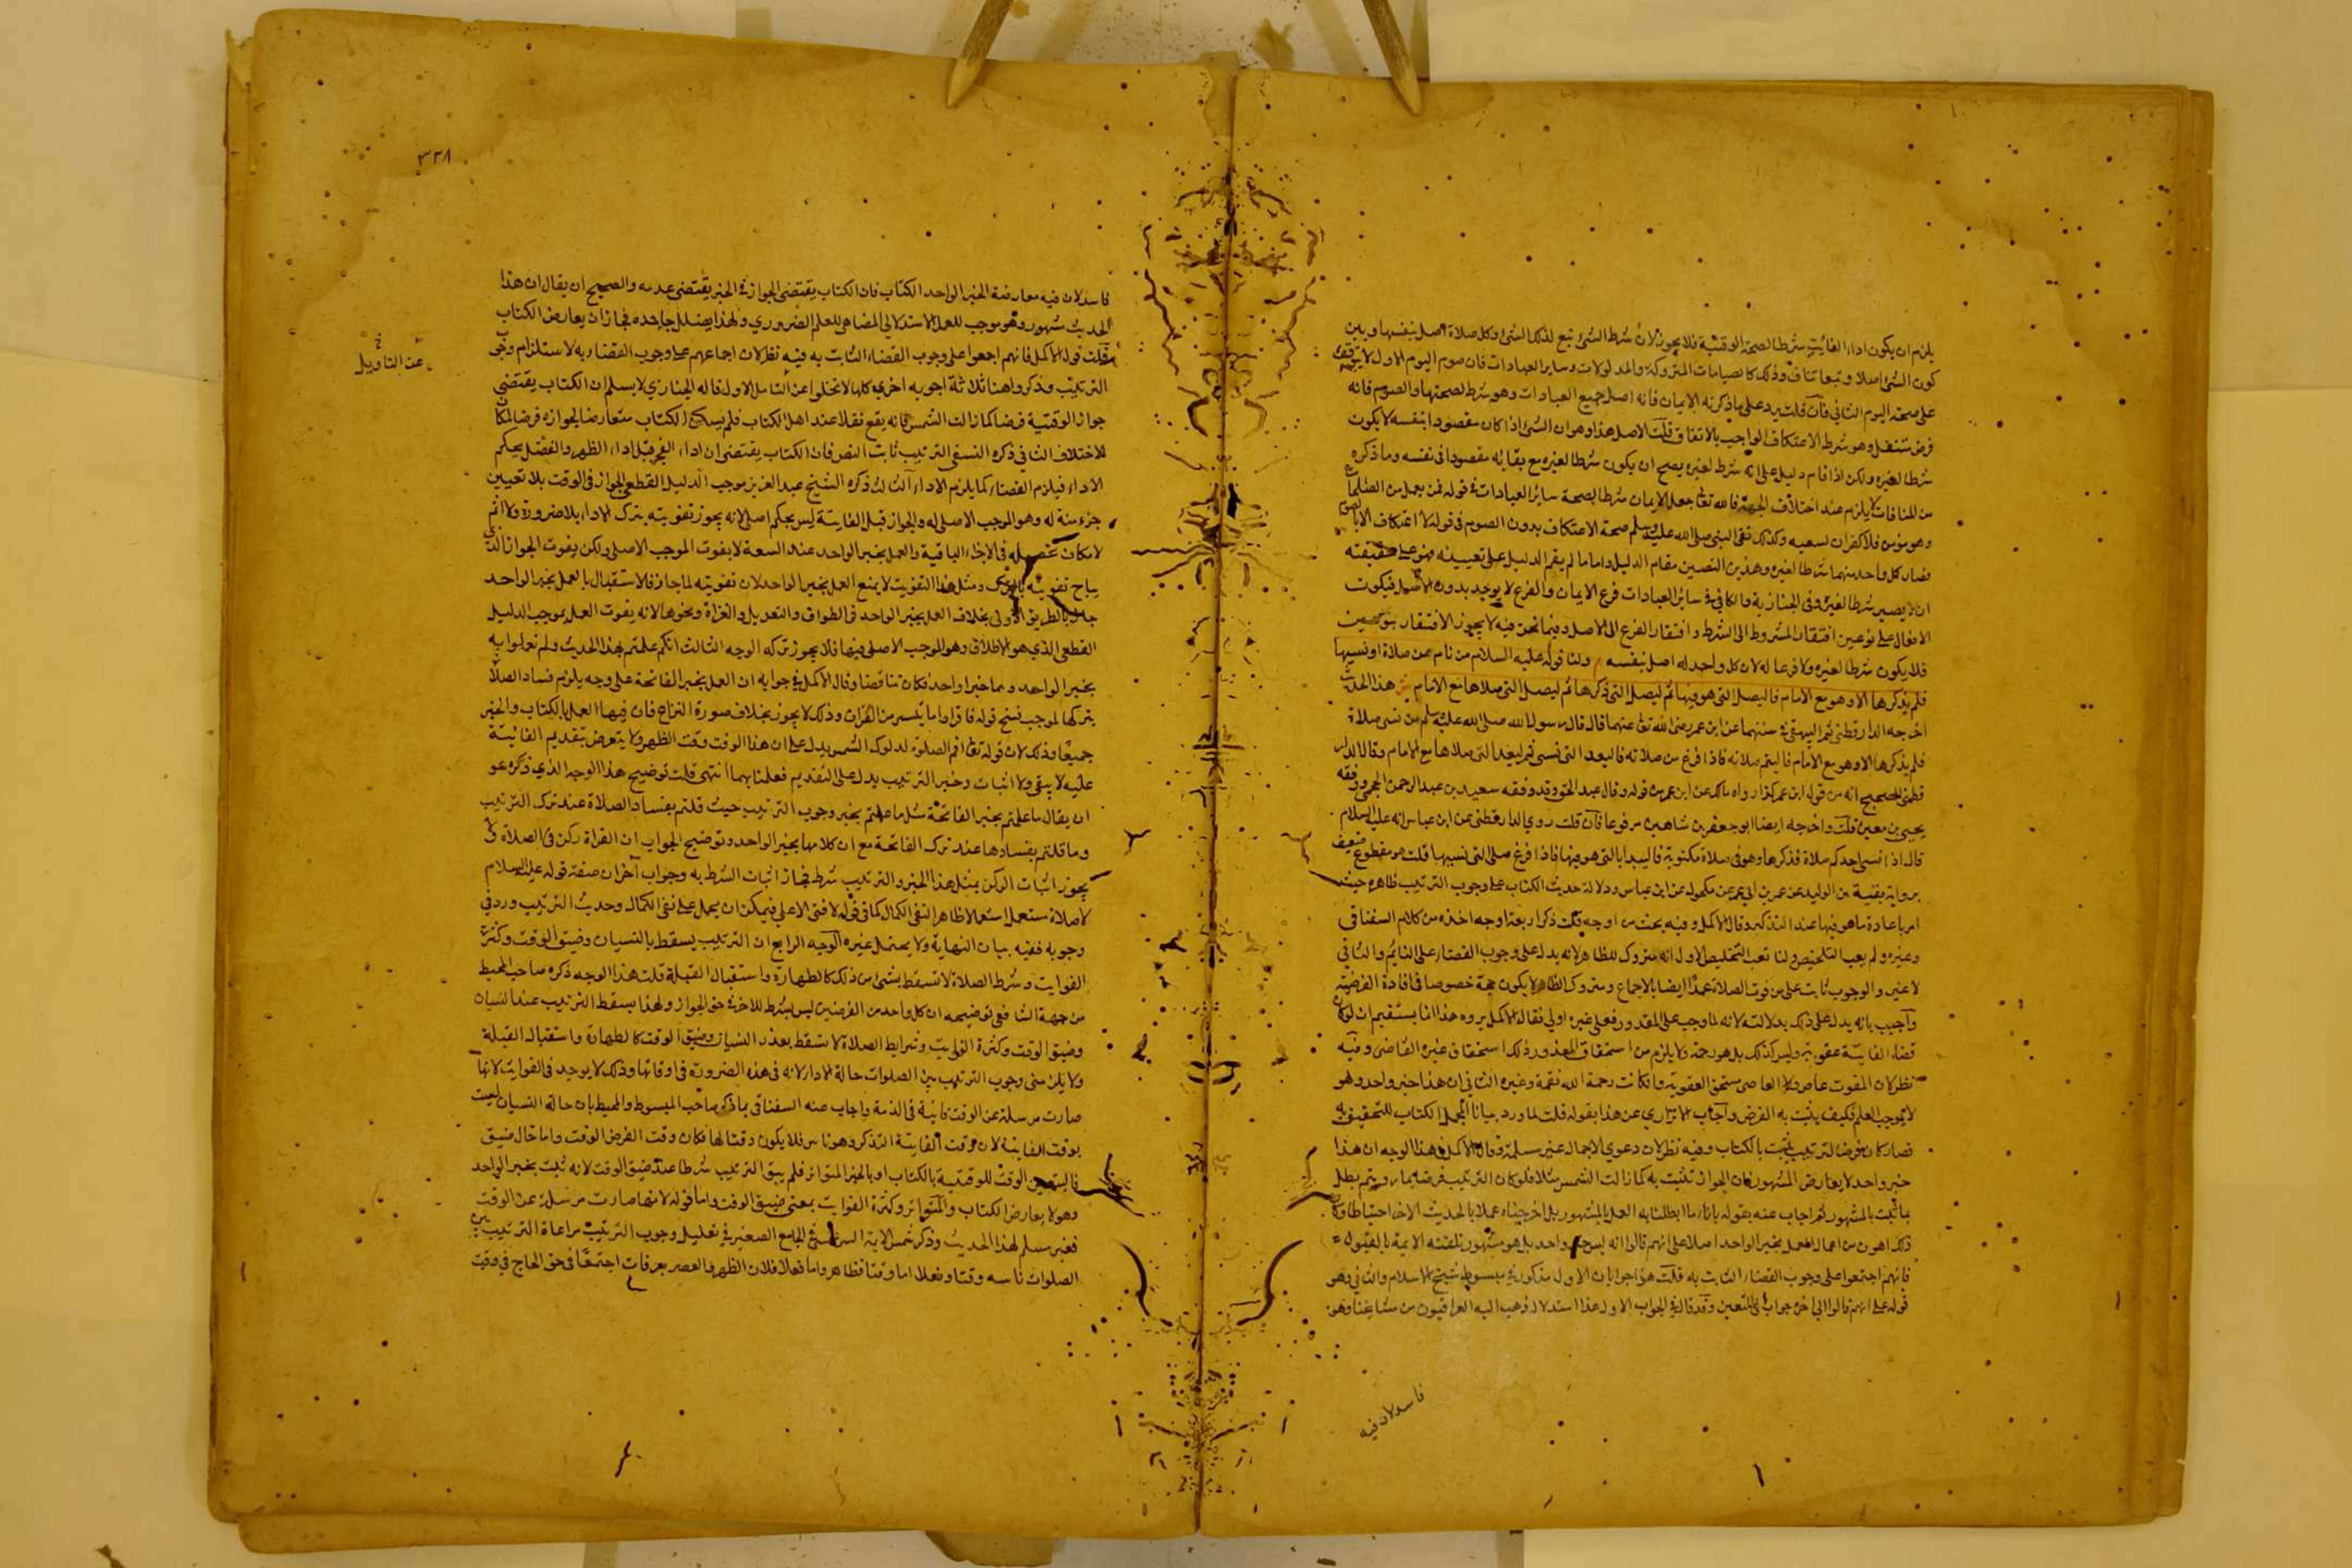 يلزم ان يكون اداء الفائتة شرطا لصحة الوقتية فلا يجوز لان شرط الشئ تبع لذلك الشئ وكل صلاة اصل بنفسها وبين
كون الشئ اصلا وتبعا تناف وذلك كالصيامات المتروكة والمدلولات وساير العبادات فان صوم اليوم الاول لا يتوقف
على صحة اليوم الثاني فان قلت يرد على ما ذكرته الايمان فانه اصل جميع العبادات وهو شرط لصحتها والصوم فانه
فرض مستقل وهو شرط الاعتكاف الواجب بالاتفاق قلت الاصل هذا وهو ان الشئ اذا كان مقصودا بنفسه لا يكون
شرطا لغيره ولكن اذا قام دليل على انه شرط لغيره يصح ان يكون شرطا لغيره مع بقائه مقصودا في نفسه وما ذكره
من المنافات لا يلزم عند اختلاف الجهة فالله تعا جعل الايمان شرطا لصحة ساير العبادات في قوله فمن يعمل من الصلحا
وهو مؤمن فلا كفران لسعيه وكذلك نفى النبي صلى الله عليه وسلم صحة الاعتكاف بدون الصوم في قوله لا اعتكاف الا بالصوم
فصار كل واحد منهما شرطا لغيره وهذين النصين مقام الدليل واما ما لم يقم الدليل على تعيينه فهو على حقيقته
ان لا يصير شرطا لغيره وفي الخبازية والكافي في ساير العبادات فرع الايمان والفرع لا يوجد بدون الاصل فيكون
الافعال على نوعين افتقار المشروط الى الشرط وافتقار الفرع الى الاصل وفيما نحن فيه لا يجوز الافتقار بنوعين
فلا يكون شرطا لغيره ولا فرعا له لان كل واحد له اصل بنفسه م ولنا قوله عليه السلام من نام عن صلاة او نسيها
فلم يذكرها الا وهو مع الامام فاليصل التي هو فيها ثم ليصل التي ذكرها ثم ليصل التي صلاها مع الامام ش هذا الحديث
اخرجه الدارقطني ثم البيهقي في سننهما عن ابن عمر رضي الله تعا عنهما قال قال رسول الله صلى الله عليه وسلم من نسي صلاة
فلم يذكرها الا وهو مع الامام فاليتم صلاته فاذا فرغ من صلاته فاليعد التي نسي ثم ليعد التي صلاها مع الامام وقال الدار
قطني الصحيح انه من قول ابن عمر كذا رواه مالك عن ابن عمر من قوله وقال عبد الحق وقد وقفه سعيد بن عبد الرحمن الجمحي ووثقه
يحيى بن معين قلت واخرجه ايضا ابو جعفر بن شاهين مرفوعا فان قلت روي الدارقطني عن ابن عباس انه عليه السلام
قال اذا نسي احدكم صلاة فذكرها وهو في صلاة مكتوبة فاليبدا بالتي هو فيها فاذا فرغ صلى التي نسيها قلت هو مقطوع ضعيف
برواية بقية بن الوليد عن عمر بن ابي عمر عن مكحول عن ابن عباس ودلالة حديث الكتاب على وجوب الترتيب ظاهره حيث
امر باعادة ما هو فيها عند التذكر وقال الاكمل وفيه بحث من اوجه قلت ذكر اربعة اوجه اخذه من كلام السغناقي
وغيره ولم يعب التلخيص ولنا تعب التخليص الاول انه متروك للظاهر لانه يدل على وجوب القضاء على النايم والثاني
لا غير والوجوب ثابت على من فوت الصلاة عمدا ايضا بالاجماع ومتروك الظاهر لا يكون حجة خصوصا في افادة الفرضية
واجيب بانه يدل على ذلك بدلالته لانه لما وجب على المعذور فعلى غيره اولى فقال الاكمل يروه هذا انما يستقيم ان لو كان
قضاء الفايتة عقوبة وليس كذلك بل هو رحمة ولا يلزم من استحقاق المعذور ذلك استحقاق غيره القاضي وفيه
نظر لان المفوت عاص ولا العاصي يستحق العقوبة وان كانت رحمة الله نقمة وغيره الثاني ان هذا خبر واحد وهو
لا يوجب العلم فكيف يثبت به الفرض واجاب الاترازي عن هذا بقوله قلت لما ورد بيانا لمجمل الكتاب للتحقيق به
فصار كان فرض الترتيب يثبت بالكتاب وفيه نظر لان دعوي الاجمال غير مسلم وقال الاكمل في هذا الوجه ان هذا
خبر واحد لا يعارض المشهور فان الجواز تثبت به كما زالت الشمس مثلا فلو كان الترتيب فرضا بما رويتم بطل
ما ثبت بالمشهور ثم اجاب عنه بقوله بانا ما ابطلنا به العمل بالمشهور بل اخرجناه عملا بالحديث الاخر احتياطا وكان
ذلك اهون من اعمال العمل بخبر الواحد اصلا على انهم قالوا انه ليس خبر واحد بل هو مشهور تلقته الايمة بالقبول
فانهم اجتمعوا على وجوب القضاء الثابت به قلت هذا جوابان الاول مذكور في مبسوط شيخ الاسلام والثاني وهو
قوله على انهم قالوا الى اخره جواب التعيين وقد قال في الجواب الاول هذا استدلال ذهب اليه العراقيون من مشايخنا وهو
فاسد لان فيه
٣٣٨
فاسد لان فيه معارضة الخبر الواحد الكتاب فان الكتاب يقتضي الجواز في الخبر يقتضي عدمه والصحيح ان يقال ان هذا
الحديث مشهور وهو موجب للعمل الاستدلالي المضاهي للعلم الضروري ولهذا يضلل جاحده فجاز ان يعارض الكتاب
عن التاويل
قلت قول الاكمل فانهم اجمعوا على وجوب القضاء الثابت به فيه نظر لان اجماعهم على وجوب القضاء به لا يستلزم وجوب
الترتيب وذكروا هنا ثلاثة اجوبه اخري كلها لا تخلوا عن التامل الاول قاله الخبازي لا يسلم ان الكتاب يقتضي
جواز الوقتية فرضا كما زالت الشمس فانه يقع نفلا عند اهل الكتاب فلم يصلح الكتاب متعارضا لجوازه فرضا لمكان
الاختلاف الثاني ذكره النسفي الترتيب ثابت النص فان الكتاب يقتضي ان اداء الفجر قبل اداء الظهر والفضل يحكم
الاداء فيلزم القضاء كما يلزم الاداء الثالث ذكره الشيخ عبد العزيز موجب الدليل القطعي الجواز في الوقت بلا تعيين
جزء منه له وهو الموجب الاصلي له والجواز قبل الفايتة ليس بحكم اصلي لانه يجوز تفويته بترك الاداء بلا ضرورة ولا اثم
لامكان تحصيله في الاجزاء الباقية والعمل بخبر الواحد عند السعة لا يفوت الموجب الاصلي ولكن يفوت الجواز الذي
يباح تفويته بالترك ومثل هذا التفويت لا يمنع العمل بخبر الواحد لان تفويته لما جاز فالاستقبال بالعمل بخبر الواحد
جاز بالطريق الاولى بخلاف العمل بخبر الواحد في الطواف والتعديل والقراة ونحوها لانه يفوت العمل بموجب الدليل
القطعي الذي هو الاطلاق وهو الموجب الاصلي فيها فلا يجوز تركه الوجه الثالث انكم علمتم بهذا الحديث ولم تعملوا به
بخبر الواحد وهما خبرا واحد فكان تناقضا وقال الاكمل في جوابه ان العمل بخبر الفاتحة على وجه يلزم فساد الصلاة
بتركها لموجب نسخ قوله فاقراوا ما تيسر من القران وذلك لا يجوز بخلاف صورة النزاع فان فيها العمل بالكتاب والخبر
جميعا وذلك لان قوله تعا اقم الصلوة لدلوك الشمس يدل على ان هذا الوقت وقت الظهر ولا يتعرض بتقديم الفايتة
عليه لا بنفي ولا اثبات وخبر الترتيب يدل على التقديم فعملنا بهما انتهى قلت توضيح هذا الوجه الذي ذكره هو
ان يقال ما علمتم بخبر الفاتحة مثل ما علمتم بخبر وجوب الترتيب حيث قلتم بفساد الصلاة عند ترك الترتيب
وما قلتم بفسادها عند ترك الفاتحة مع ان كلا منهما بخبر الواحد وتوضيح الجواب ان القراة ركن في الصلاة ولا
يجوز اثبات الركن بمثل هذا الخبر والترتيب شرط فجاز اثبات الشرط به وجواب آخر ان صفة قوله عليه السلام
لا صلاة مستعمل استعمالا ظاهرا لنفي الكمال كما في قوله لا فتى الا علي فيمكن ان يحمل على نفي الكمال وحديث الترتيب ورد في
وجوبه ففيه بيان النهاية ولا يحتمل غيره الوجه الرابع ان الترتيب يسقط بالنسيان وضيق الوقت وكثرة
الفوايت وشرط الصلاة لا تسقط بشئ من ذلك كالطهارة واستقبال القبلة قلت هذا الوجه ذكره صاحب المحيط
من جهة الشافعي توضيحه ان كل واحد من الفرضين ليس بشرط للاخر في حق الجواز ولهذا يسقط الترتيب عند النسيان
وضيق الوقت وكثرة الفوايت وشرايط الصلاة لا تسقط بعذر النسيان وضيق الوقت كالطهارة واستقبال القبلة
ولا يلزمني وجوب الترتيب بين الصلوات حالة الاداء لانه في هذه الضرورة في اوقاتها وذلك لا يوجد في الفوايت لانها
صارت مرسلة عن الوقت ثابتة في الذمة واجاب عنه السغناقي بما ذكر صاحب المبسوط والمحيط بان حالة النسيان ليست
بوقت الفايتة لان وقت الفايتة التذكر وهو ناس فلا يكون وقتا لها فكان وقت الفرض الوقت واما حال ضيق
فاليتعين الوقت للوقتية بالكتاب او بالخبر المتواتر فلم يبق الترتيب شرطا عند ضيق الوقت لانه ثبت بخبر الواحد
وهو لا يعارض الكتاب والمتواتر وكثرة الفوايت بمعنى ضيق الوقت واما قوله لانها صارت مرسلة عن الوقت
فغير مسلم لهذا الحديث وذكر شمس الايمة السرخسي في الجامع الصغير في تعليل وجوب الترتيب مراعاة الترتيب بين
الصلوات وقتا وفعلا اما وقتا فظاهر واما فعلا فلان الظهر والعصر بعرفات اجتمعا في حق الحاج في وقت